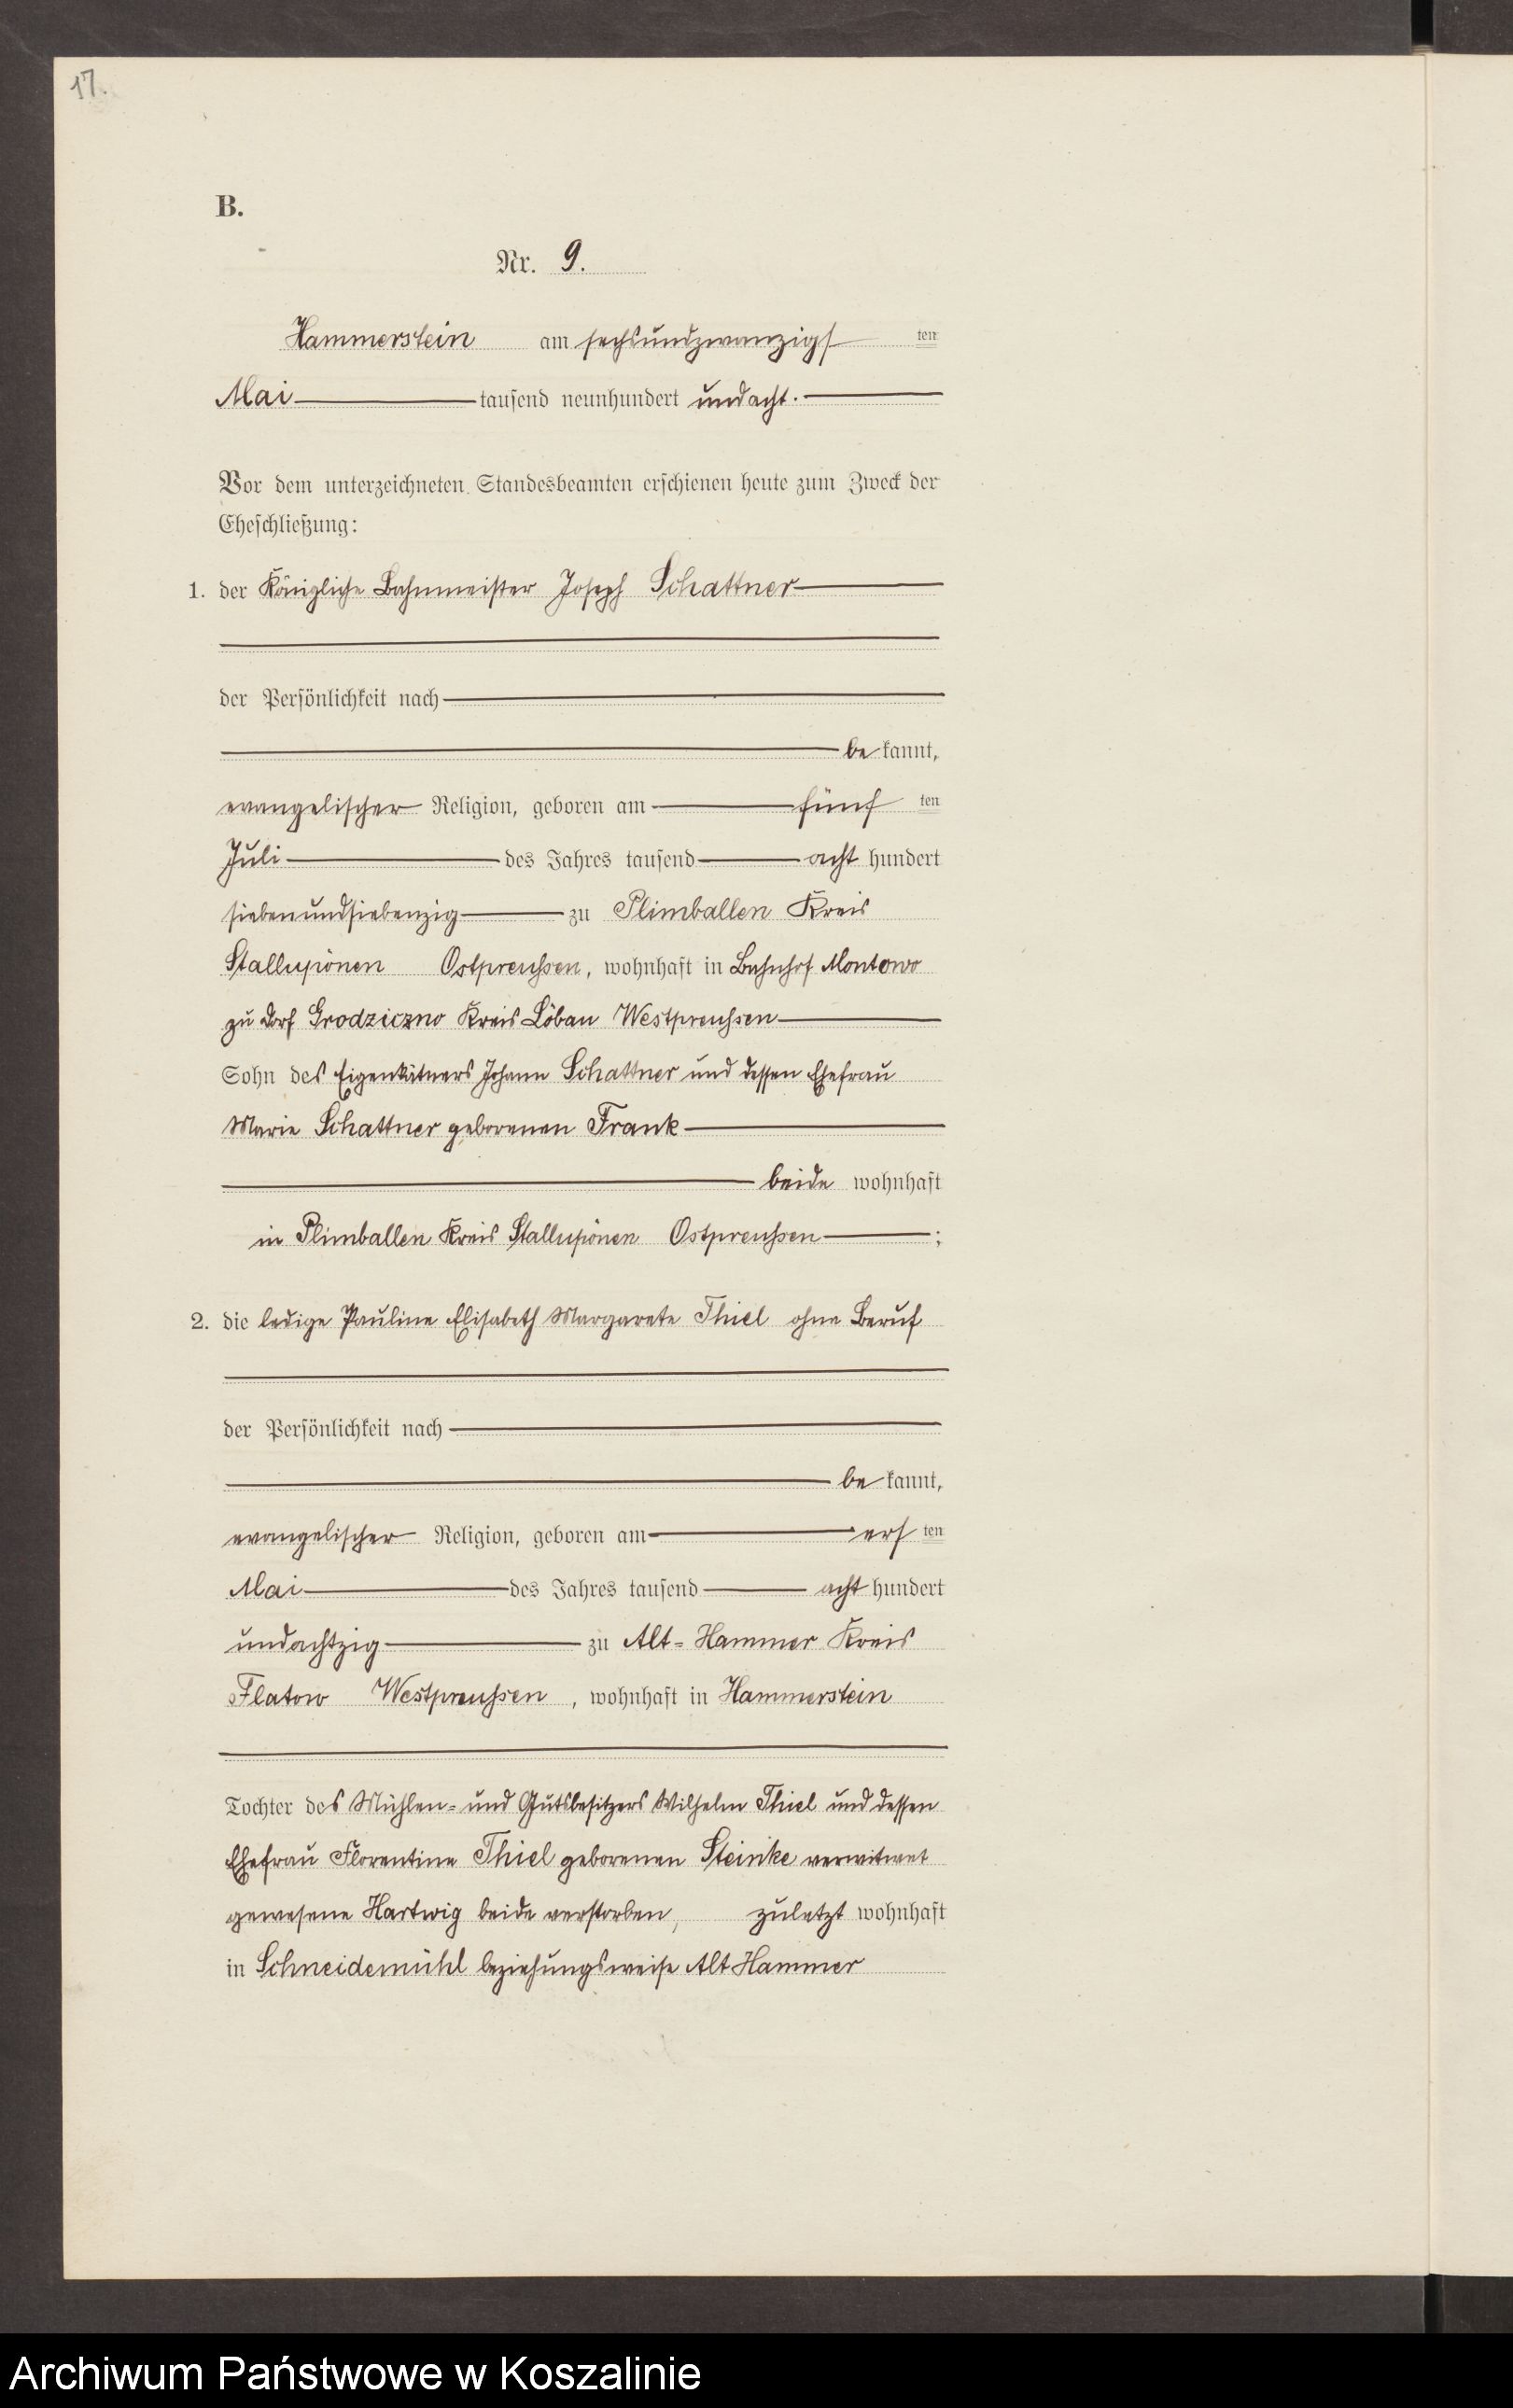 17.
B.
Nr. 9.
Hammerstein am sechsundzwanzigs ten
Mai tausend neunhundert undacht.
Vor dem unterzeichneten Standesbeamten erschienen heute zum Zweck der
Eheschließung:
1. der Königliche Bahnmeister Joseph Schattner
der Persönlichkeit nach
be kannt,
evangelischer Religion, geboren am fünf ten
Juli des Jahres tausend acht hundert
siebenundsiebenzig zu Plimballen Kreis
Stallupönen Ostpreußen, wohnhaft in Bahnhof Montowo
zu Dorf Grodziczno Kreis Löbau Westpreußen
Sohn des Eigenkätners Johann Schattner und dessen Ehefrau
Marie Schattner geborenen Frank
beide wohnhaft
in Plimballen Kreis Stallupönen Ostpreußen ;
2. die ledige Pauline Elisabeth Margarete Thiel ohne Beruf
der Persönlichkeit nach
be kannt,
evangelischer Religion, geboren am ers ten
Mai des Jahres tausend acht hundert
undachtzig zu Alt-Hammer Kreis
Flatow Westpreußen, wohnhaft in Hammerstein
Tochter des Mühlen- und Gutsbesitzers Wilhelm Thiel und dessen
Ehefrau Florentine Thiel geborenen Steinke verwitwet
gewesene Hartwig beide verstorben, zuletzt wohnhaft
in Schneidemühl beziehungsweise Alt Hammer
Archiwum Państwowe w Koszalinie